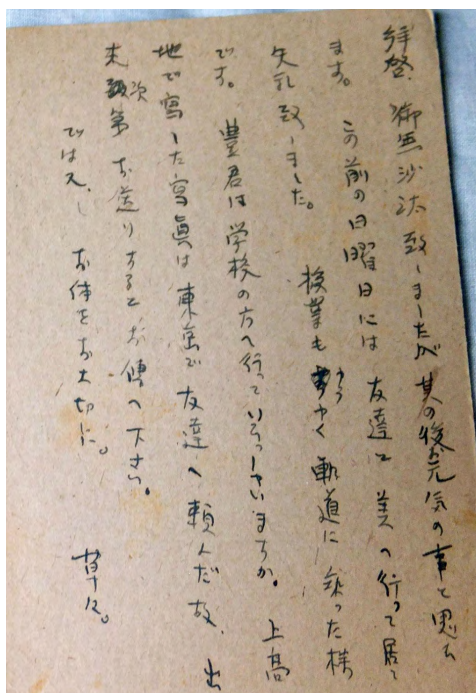 拝啓、御無沙汰致しましたが其の後お元気の事と思ひ
ます。この前の日曜日には友達と美へ行って居て
失礼致しました。授業もやうやく軌道に乗った様
です。豊君は学校の方へ行っていらっしゃいますか。上高
地で寫した寫眞は東島で友達へ頼んだ故、出
来次第お送りするとお傳へ下さい。
では又、お体をお大切に。
草々。